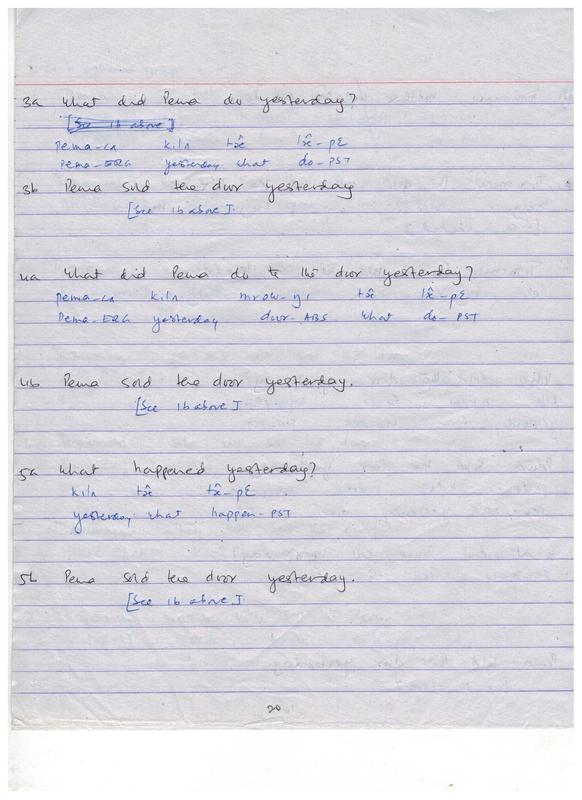 3a What did Pema do yesterday?
[See 1b above]
pema-cʌ kilʌ tæ̂ læ̂-pɛ
Pema-ERG yesterday what do-PST
3b Pema sold the door yesterday
[See 1b above].
4a What did Pema do to the door yesterday?
pema-cʌ kilʌ mrow-yi tæ̂ læ̂-pɛ
Pema-ERG yesterday door-ABS what do-PST
4b Pema sold the door yesterday.
[See 1b above].
5a What happened yesterday?
kilʌ tæ̂ tæ̂-pɛ
yesterday what happen-PST
5b Pema sold the door yesterday.
[See 1b above].
20